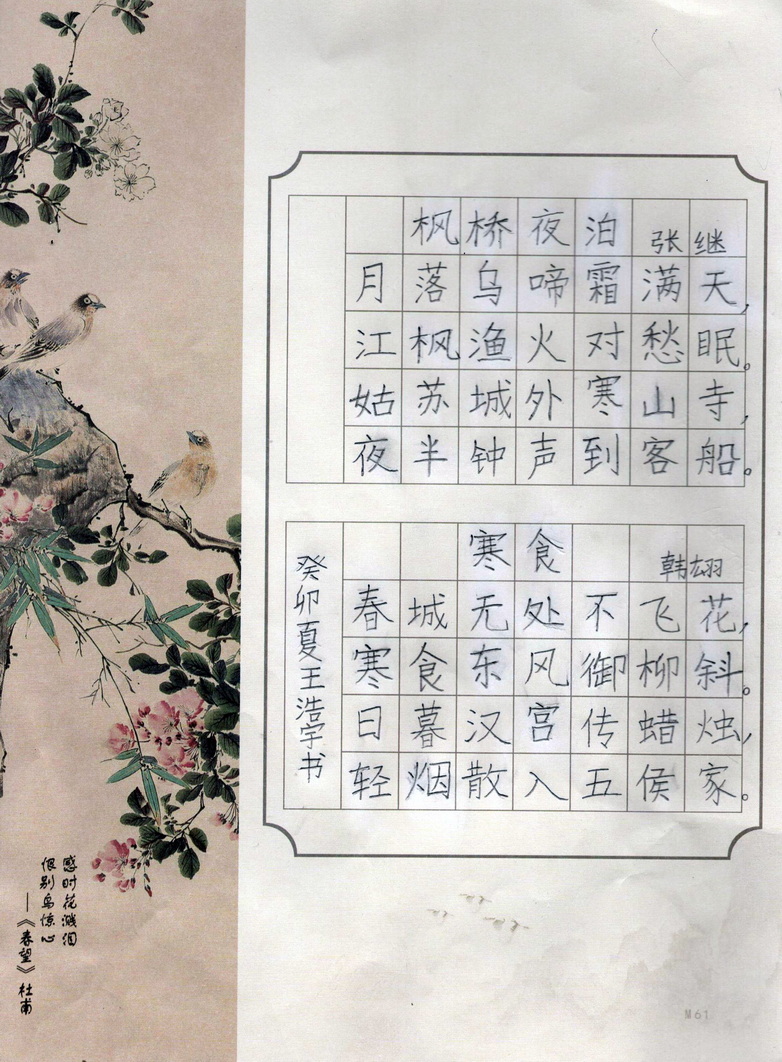 枫桥夜泊 张继
月落乌啼霜满天,
江枫渔火对愁眠。
姑苏城外寒山寺,
夜半钟声到客船。
寒食 韩翃
春城无处不飞花,
寒食东风御柳斜。
日暮汉宫传蜡烛,
轻烟散入五侯家。
癸卯夏王浩宇书
感时花溅泪
恨别鸟惊心
——《春望》杜甫
M61